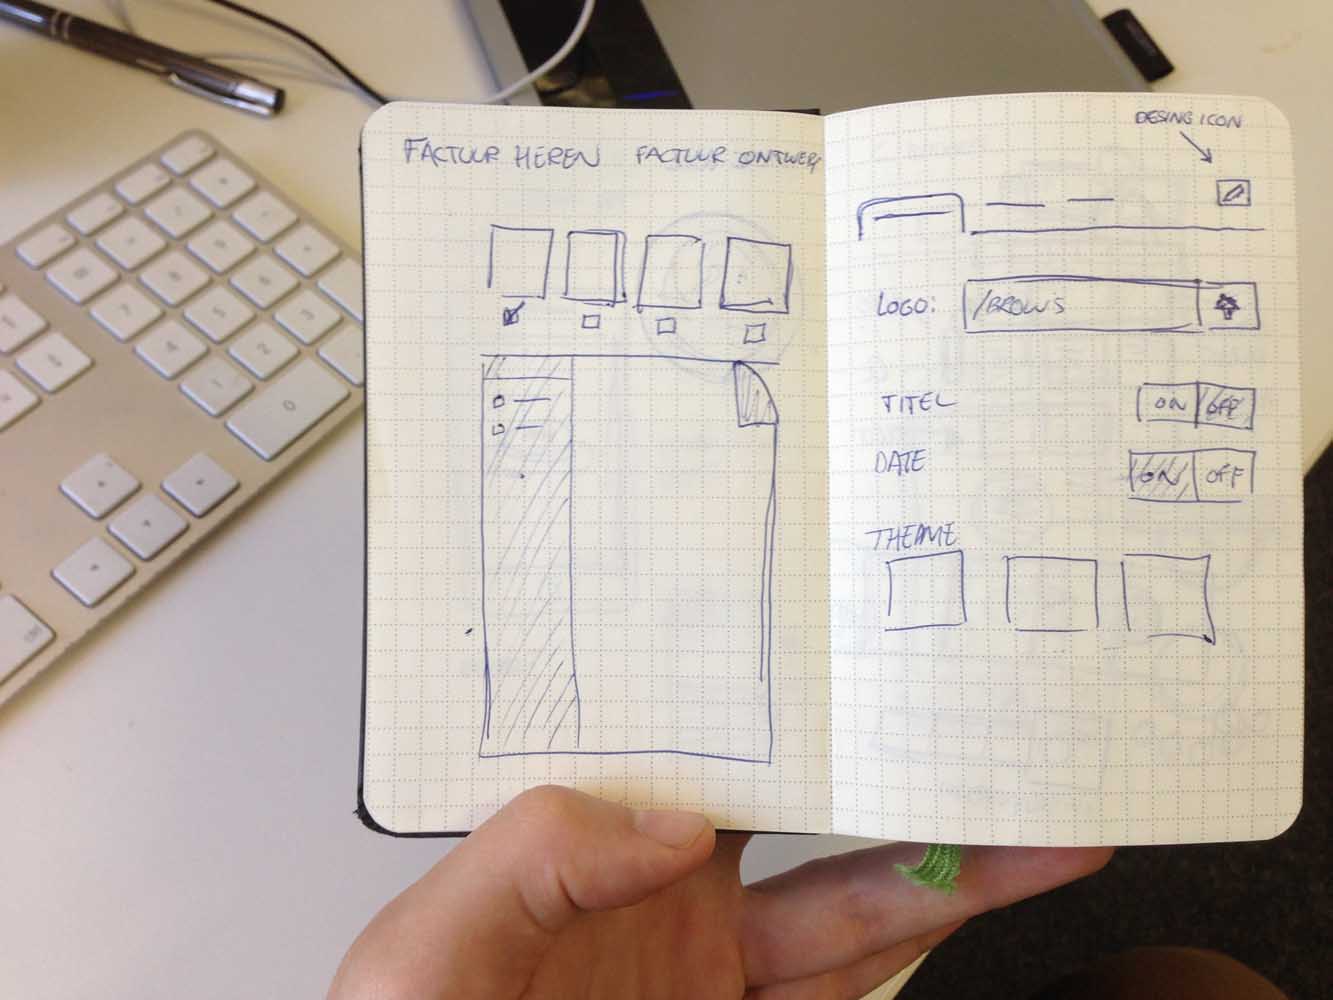 FACTUUR HEREN FACTUUR ONTWERP
DESING ICON
LOGO: /BROWS
TITEL ON OFF
DATE ON OFF
THEME